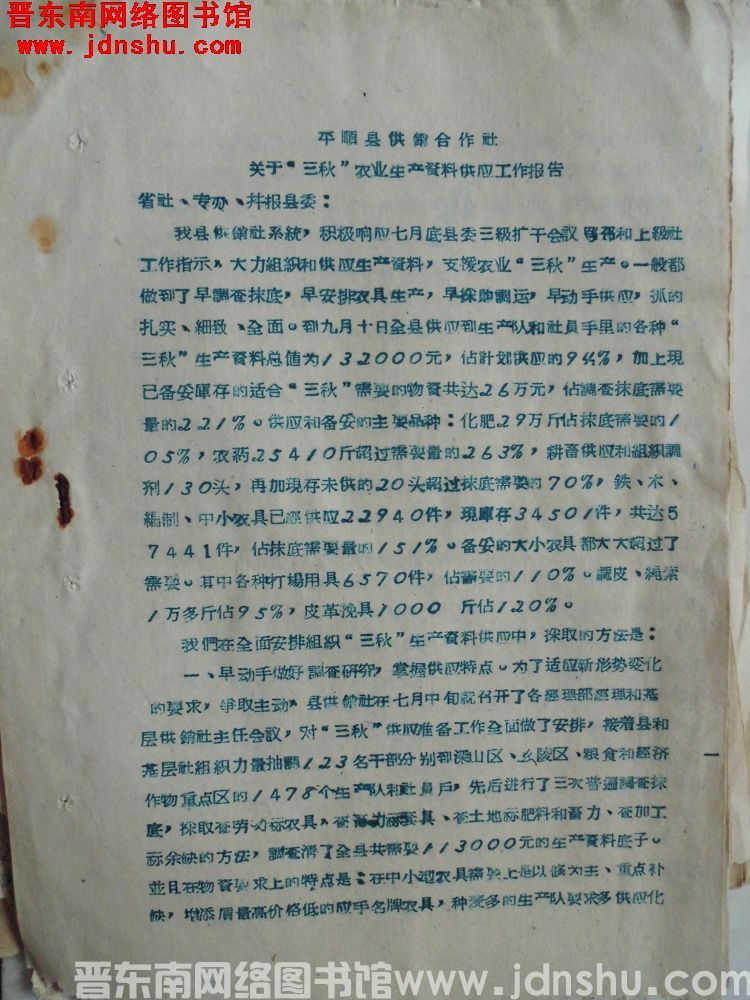 晋东南网络图书馆
www.jdnshu.com
平順县供銷合作社
关于“三秋”农业生产資料供应工作报告
省社、专办、并报县委：
我县供銷社系統，积极响应七月底县委三級扩干会議号召和上級社
工作指示，大力組织和供应生产資料，支援农业“三秋”生产。一般都
做到了早調查抹底，早安排农具生产，早採购調运，早动手供应，抓的
扎实、細致、全面。到九月十日全县供应到生产队和社員手里的各种“
三秋”生产資料总值为132000元，佔計划供应的94%，加上現
已备妥庫存的适合“三秋”需要的物資共达26万元，佔調查抹底需要
量的221%。供应和备妥的主要品种：化肥29万斤佔抹底需要的1
05%，农葯25410斤超过需要量的263%，耕畜供应和組織調
剂130头，再加現存未供的20头超过抹底需要的70%，鉄、木、
編制、中小农具已經供应22940件，現庫存34501件，共达5
7441件，佔抹底需要量的151%。备妥的大小农具都大大超过了
需要。其中各种打場用具6570件，佔需要的110%。蔴皮、繩索
1万多斤佔95%，皮革挽具1000 斤佔120%。
我們在全面安排組織“三秋”生产資料供应中，採取的方法是：
一、早动手做好調查研究，掌握供应特点。为了适应新形势变化
的要求，爭取主动，县供銷社在七月中旬就召开了各經理部經理和基
层供銷社主任会議，对“三秋”供应准备工作全面做了安排，接着县和
基层社組织力量抽調123名干部分别到深山区、丘陵区、粮食和經济
作物重点区的1478个生产队和社員戶，先后进行了三次普遍調查抹
底，採取查劳动标农具、查 具、查土地标肥料和畜力、查加工
标余缺的方法，調查清了全县共需要113000元的生产資料底子。
並且在物資要求上的特点是：在中小型农具需要上是以修为主、重点补
缺，增添质量高价格低的应手名牌农具，种麦多的生产队要求多供应化
晋东南网络图书馆www.jdnshu.com